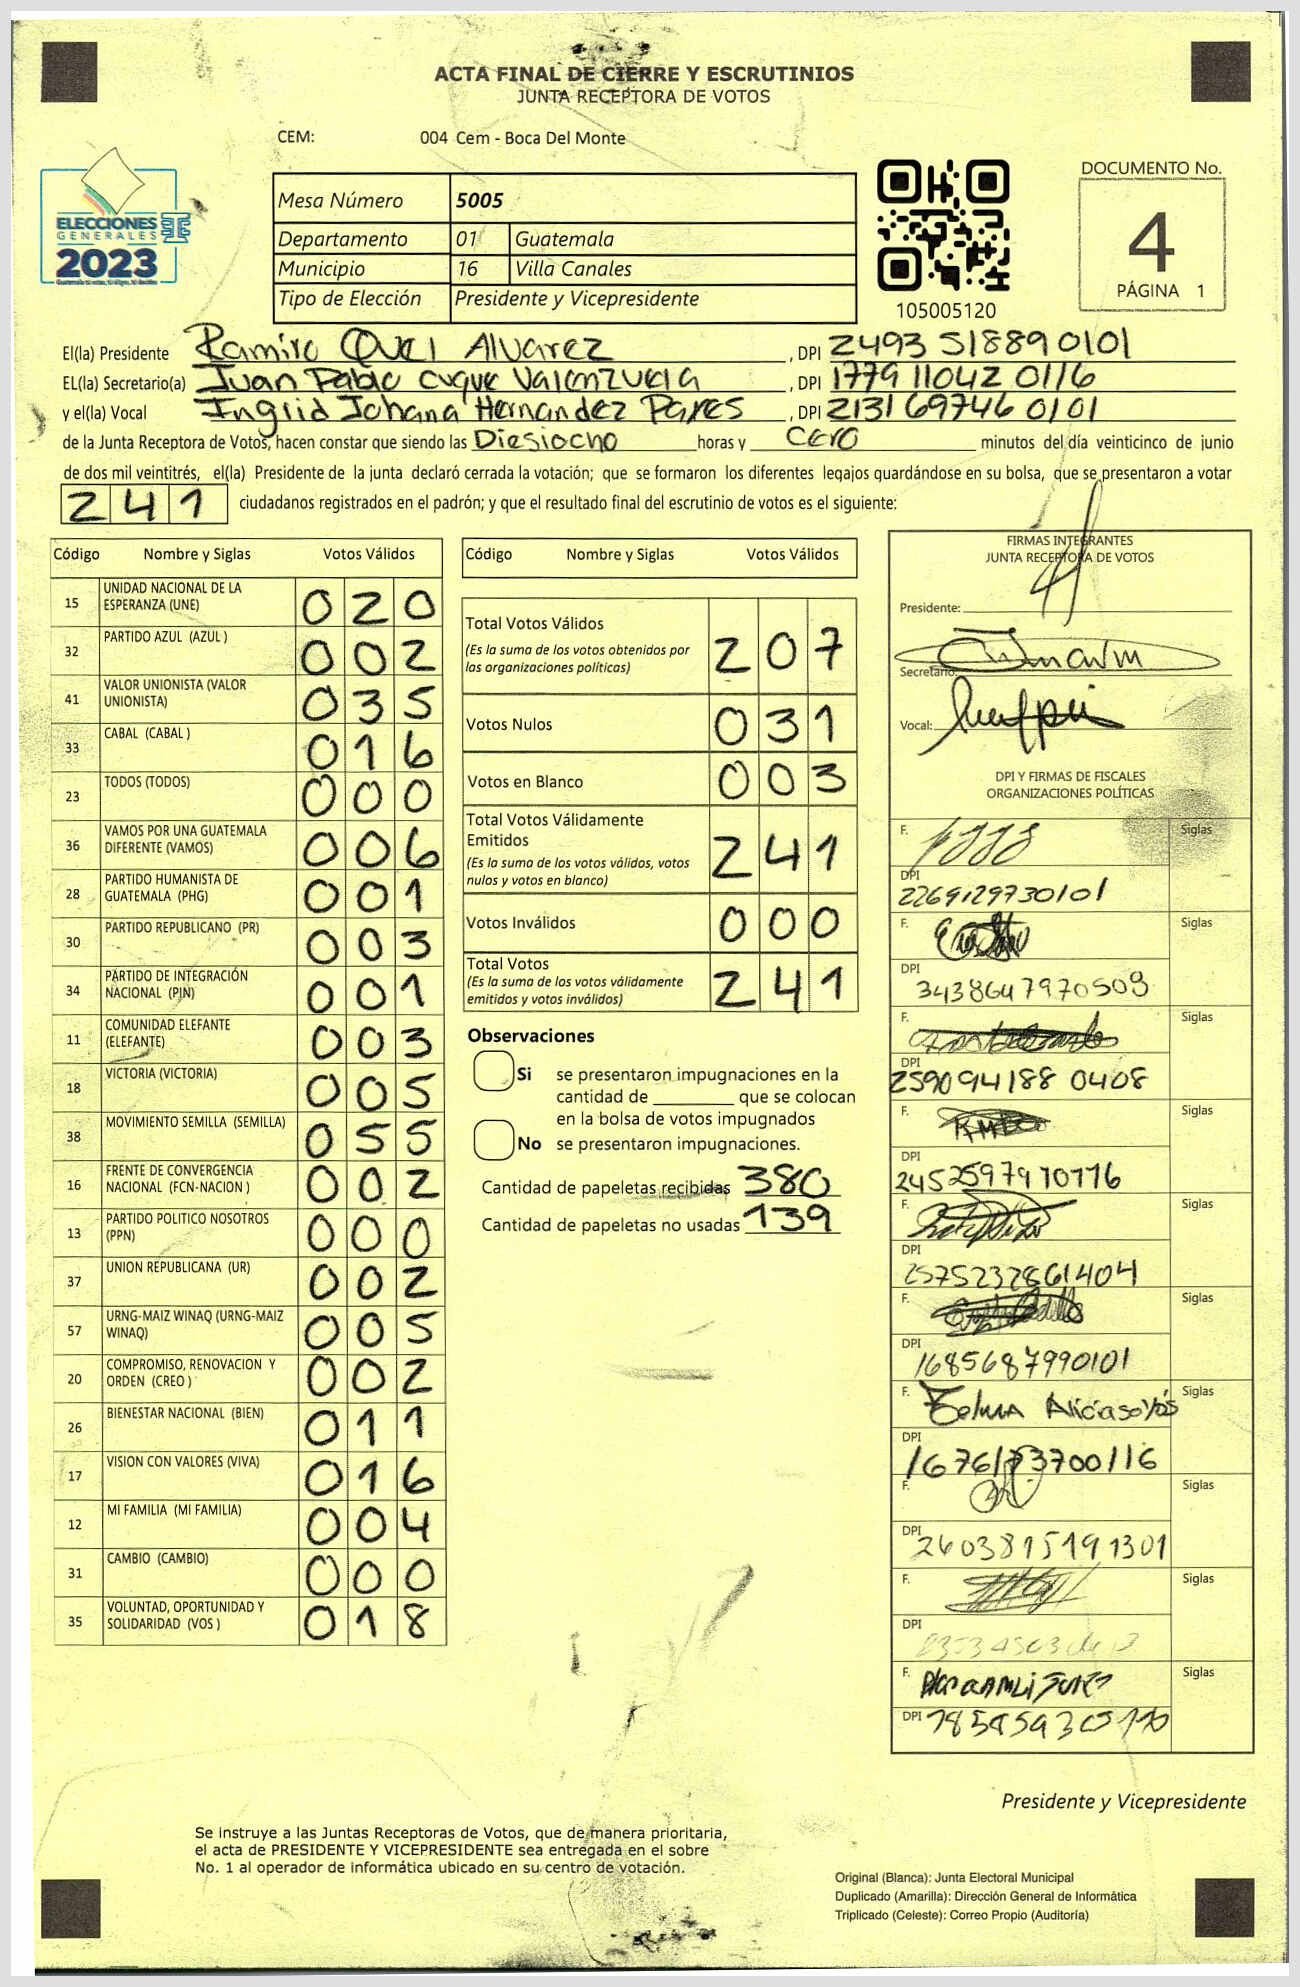 ACTA FINAL DE CIERRE Y ESCRUTINIOS
JUNTA RECEPTORA DE VOTOS
CEM: 004 Cem - Boca Del Monte
ELECCIONES
GENERALES
2023
Mesa Número 5005
Departamento 01 Guatemala
Municipio 16 Villa Canales
Tipo de Elección Presidente y Vicepresidente
105005120
DOCUMENTO No.
4
PÁGINA 1
El(la) Presidente Ramiro Quel Alvarez, DPI 2493 51889 0101
EL(la) Secretario(a) Juan Pablo Cuque Valenzuela, DPI 1779 11042 0116
y el(la) Vocal Ingrid Johana Hernandez Pares, DPI 2131 69746 0101
de la Junta Receptora de Votos, hacen constar que siendo las Diesiocho horas y cero minutos del día veinticinco de junio
de dos mil veintitrés, el(la) Presidente de la junta declaró cerrada la votación; que se formaron los diferentes legajos guardándose en su bolsa, que se presentaron a votar
241 ciudadanos registrados en el padrón; y que el resultado final del escrutinio de votos es el siguiente:
Código Nombre y Siglas Votos Válidos
15 UNIDAD NACIONAL DE LA ESPERANZA (UNE) 020
32 PARTIDO AZUL (AZUL ) 002
41 VALOR UNIONISTA (VALOR UNIONISTA) 035
33 CABAL (CABAL ) 016
23 TODOS (TODOS) 000
36 VAMOS POR UNA GUATEMALA DIFERENTE (VAMOS) 006
28 PARTIDO HUMANISTA DE GUATEMALA (PHG) 001
30 PARTIDO REPUBLICANO (PR) 003
34 PARTIDO DE INTEGRACIÓN NACIONAL (PIN) 001
11 COMUNIDAD ELEFANTE (ELEFANTE) 003
18 VICTORIA (VICTORIA) 005
38 MOVIMIENTO SEMILLA (SEMILLA) 055
16 FRENTE DE CONVERGENCIA NACIONAL (FCN-NACION ) 002
13 PARTIDO POLITICO NOSOTROS (PPN) 000
37 UNION REPUBLICANA (UR) 002
57 URNG-MAIZ WINAQ (URNG-MAIZ WINAQ) 005
20 COMPROMISO, RENOVACION Y ORDEN (CREO ) 002
26 BIENESTAR NACIONAL (BIEN) 011
17 VISION CON VALORES (VIVA) 016
12 MI FAMILIA (MI FAMILIA) 004
31 CAMBIO (CAMBIO) 000
35 VOLUNTAD, OPORTUNIDAD Y SOLIDARIDAD (VOS ) 018
Código Nombre y Siglas Votos Válidos
Total Votos Válidos 207
(Es la suma de los votos obtenidos por
las organizaciones políticas)
Votos Nulos 031
Votos en Blanco 003
Total Votos Válidamente
Emitidos 241
(Es la suma de los votos válidos, votos
nulos y votos en blanco)
Votos Inválidos 000
Total Votos 241
(Es la suma de los votos válidamente
emitidos y votos inválidos)
Observaciones
Si se presentaron impugnaciones en la
cantidad de ________ que se colocan
en la bolsa de votos impugnados
No se presentaron impugnaciones.
Cantidad de papeletas recibidas 380
Cantidad de papeletas no usadas 139
FIRMAS INTEGRANTES
JUNTA RECEPTORA DE VOTOS
Presidente:
Secretario:
Vocal:
DPI Y FIRMAS DE FISCALES
ORGANIZACIONES POLÍTICAS
F. Siglas
DPI 2269129730101
F. Siglas
DPI 3438647970509
F. Siglas
DPI 259094188 0408
F. Siglas
DPI
F. Siglas
DPI 2575232861404
F. Siglas
DPI 1685687990101
F. Telma Alicia Siglas
DPI
F. Siglas
DPI 2603815191301
F. Siglas
DPI
F. Siglas
DPI
Presidente y Vicepresidente
Se instruye a las Juntas Receptoras de Votos, que de manera prioritaria,
el acta de PRESIDENTE Y VICEPRESIDENTE sea entregada en el sobre
No. 1 al operador de informática ubicado en su centro de votación.
Original (Blanca): Junta Electoral Municipal
Duplicado (Amarilla): Dirección General de Informática
Triplicado (Celeste): Correo Propio (Auditoría)